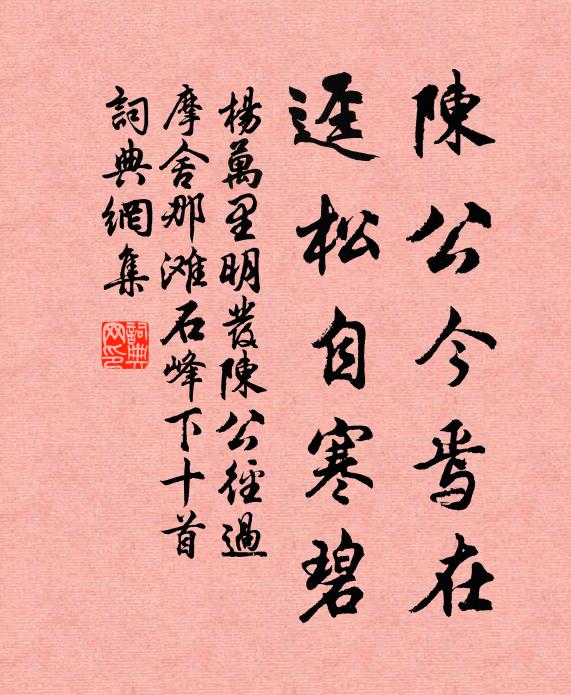 陳公今焉在
逕松自寒碧
楊萬里明發陳公徑過
摩舍那滩石峰下十首
詞典網集
詞典网印